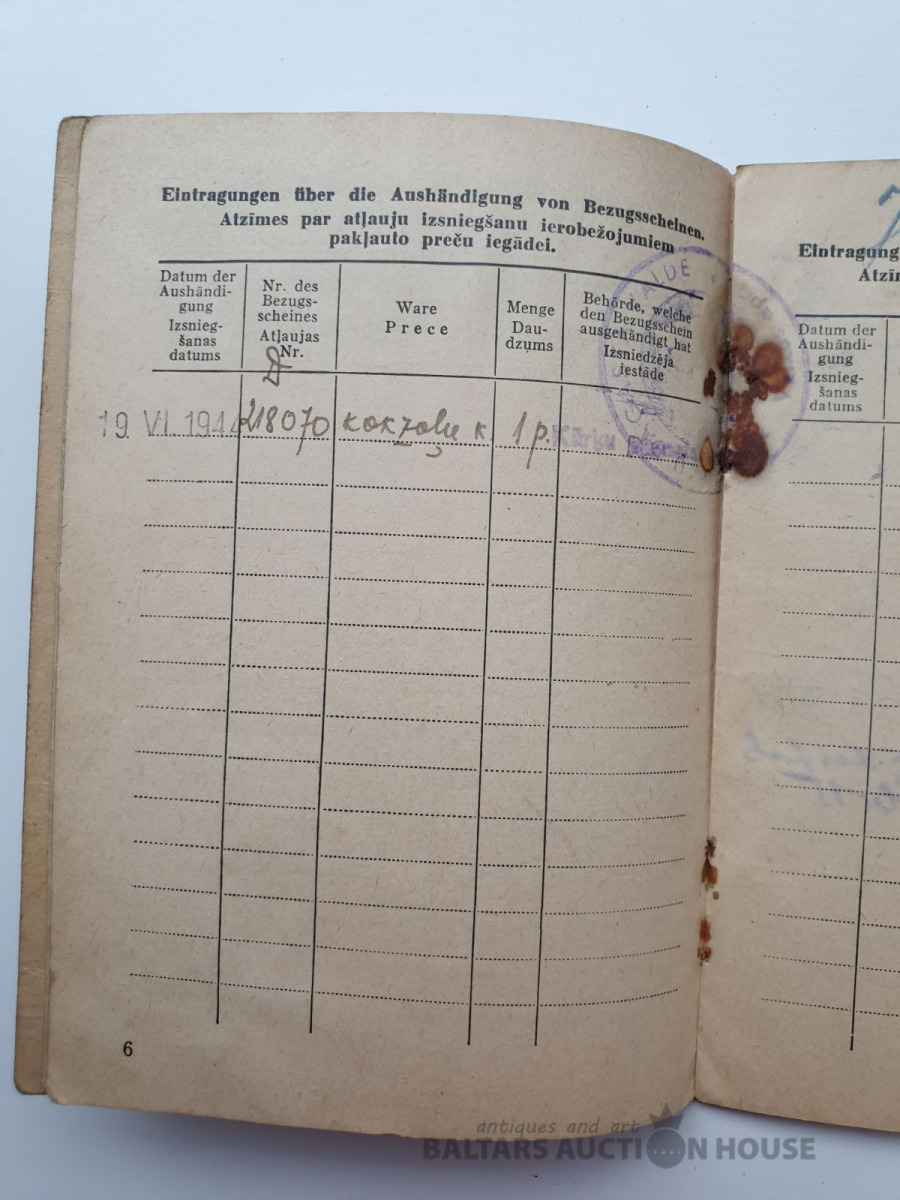 Eintragungen über die Aushändigung von Bezugsscheinen.
Atzīmes par atļauju izsniegšanu ierobežojumiem
pakļauto preču iegādei.
Datum der
Aushändi-
gung
Izsnieg-
šanas
datums
Nr. des
Bezugs-
scheines
Atļaujas
Nr.
Ware
Prece
Menge
Dau-
dzums
Behörde, welche
den Bezugsschein
ausgehändigt hat
Izsniedzēja
iestāde
D
19 VI. 1944 218070 kokzoļu k. 1 p. Kārķu
VALDE
6
Eintragung
Atzī
Datum der
Aushändi-
gung
Izsnieg-
šanas
datums
antiques and art
BALTARS AUCTION HOUSE